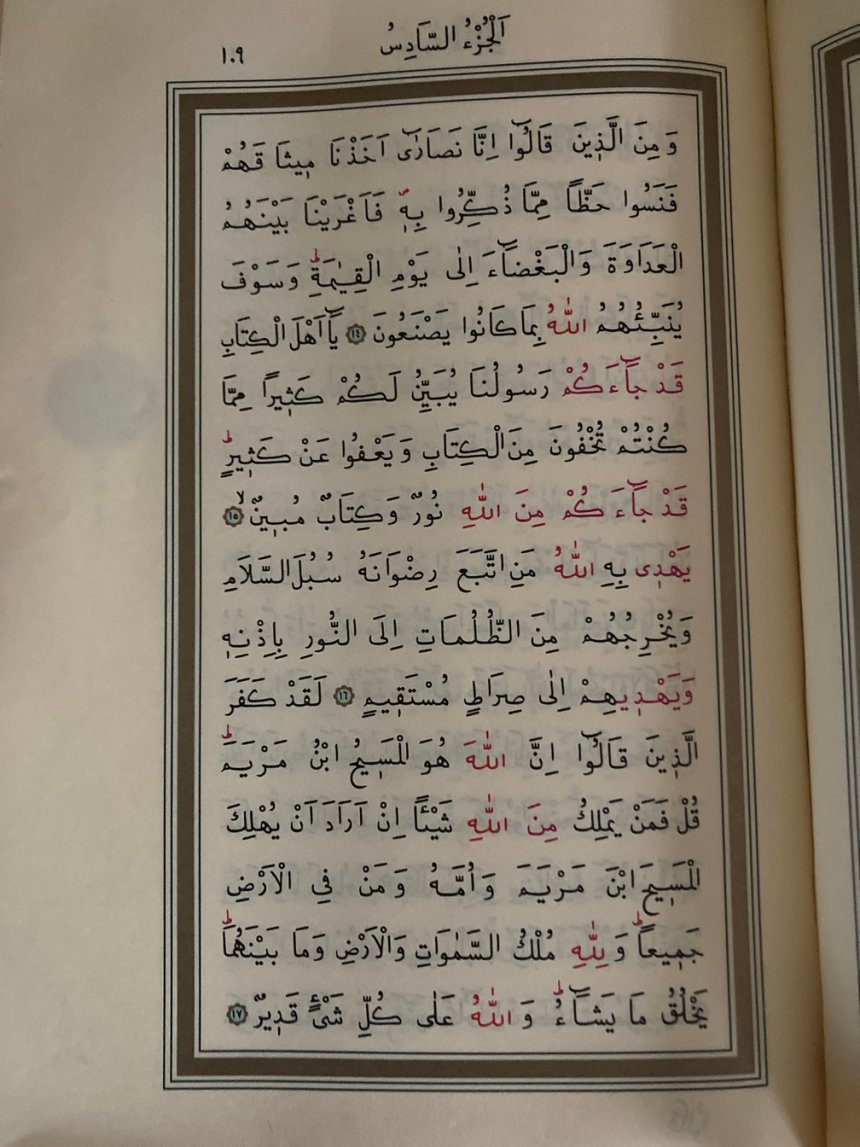 اَلْجُزْءُ السَّادِسُ
١٠٩
وَمِنَ الَّذ۪ينَ قَالُٓوا اِنَّا نَصَارٰٓى اَخَذْنَا م۪يثَاقَهُمْ
فَنَسُوا حَظًّا مِمَّا ذُكِّرُوا بِه۪ۖ فَاَغْرَيْنَا بَيْنَهُمُ
الْعَدَاوَةَ وَالْبَغْضَٓاءَ اِلٰى يَوْمِ الْقِيٰمَةِۜ وَسَوْفَ
يُنَبِّئُهُمُ اللّٰهُ بِمَا كَانُوا يَصْنَعُونَ ﴿١٤﴾ يَٓا اَهْلَ الْكِتَابِ
قَدْ جَٓاءَكُمْ رَسُولُنَا يُبَيِّنُ لَكُمْ كَث۪يرًا مِمَّا
كُنْتُمْ تُخْفُونَ مِنَ الْكِتَابِ وَيَعْفُوا عَنْ كَث۪يرٍۜ
قَدْ جَٓاءَكُمْ مِنَ اللّٰهِ نُورٌ وَكِتَابٌ مُب۪ينٌۙ ﴿١٥﴾
يَهْد۪ى بِهِ اللّٰهُ مَنِ اتَّبَعَ رِضْوَانَهُ سُبُلَ السَّلَامِ
وَيُخْرِجُهُمْ مِنَ الظُّلُمَاتِ اِلَى النُّورِ بِاِذْنِه۪
وَيَهْد۪يهِمْ اِلٰى صِرَاطٍ مُسْتَق۪يمٍ ﴿١٦﴾ لَقَدْ كَفَرَ
الَّذ۪ينَ قَالُٓوا اِنَّ اللّٰهَ هُوَ الْمَس۪يحُ ابْنُ مَرْيَمَۜ
قُلْ فَمَنْ يَمْلِكُ مِنَ اللّٰهِ شَيْـًٔا اِنْ اَرَادَ اَنْ يُهْلِكَ
الْمَس۪يحَ ابْنَ مَرْيَمَ وَاُمَّهُ وَمَنْ فِي الْاَرْضِ
جَم۪يعًاۜ وَلِلّٰهِ مُلْكُ السَّمٰوَاتِ وَالْاَرْضِ وَمَا بَيْنَهُمَاۜ
يَخْلُقُ مَا يَشَٓاءُۜ وَاللّٰهُ عَلٰى كُلِّ شَىْءٍ قَد۪يرٌ ﴿١٧﴾